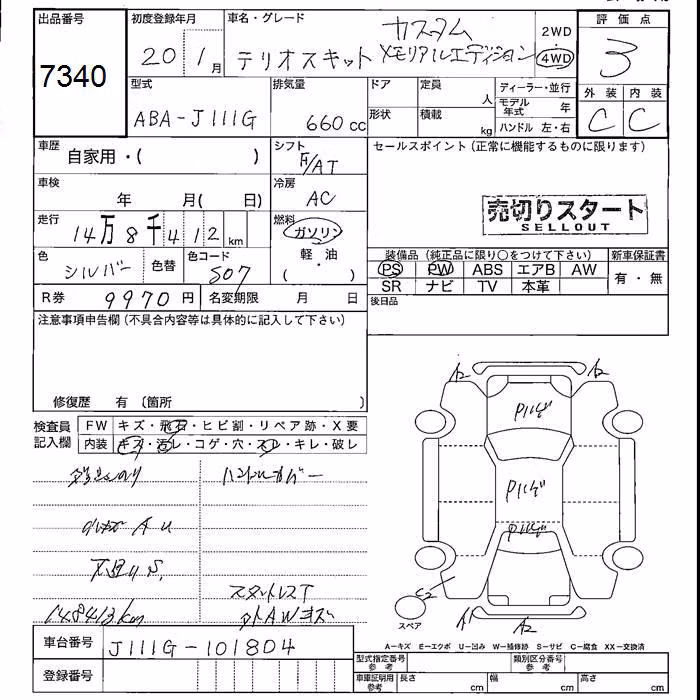 出品番号
7340
初度登録年月
20年 1月
車名・グレード
カスタム
テリオスキット メモリアルエディション
2WD
4WD
評価点
3
外装 内装
C C
型式
ABA-J111G
排気量
660cc
ドア
形状
定員
人
積載
kg
ディーラー・並行
モデル年式
年
ハンドル 左・右
車歴
自家用・( )
シフト
F/AT
車検
年 月( 日)
冷房
AC
走行
14万8千412km
燃料
ガソリン
軽・油
( )
色
シルバー
色替
色コード
S07
R券
9970円
名変期限
月 日
セールスポイント(正常に機能するものに限ります)
売切りスタート
SELLOUT
装備品(純正品に限り〇をつけて下さい)
新車保証書
PS PW ABS エアB AW
有・無
SR ナビ TV 本革
後日品
注意事項申告欄(不具合内容等は具体的に記入して下さい)
修復歴 有〔箇所 〕
検査員
記入欄
FW キズ・飛石・ヒビ割・リペア跡・X要
内装 キズ・汚レ・コゲ・穴・スレ・キレ・破レ
ハンドルカバー
小キズ A U
148413km
車台番号
J111G-101804
登録番号
A2
A2
Pハゲ
Pハゲ
Pハゲ
C2
スペア
A1
A2
A-キズ E-エクボ U-凹み W-補修跡 S-サビ C-腐食 XX-交換済
型式指定番号
参考
類別区分番号
参考
車庫証明用
参考
長さ
cm
幅
cm
高さ
cm